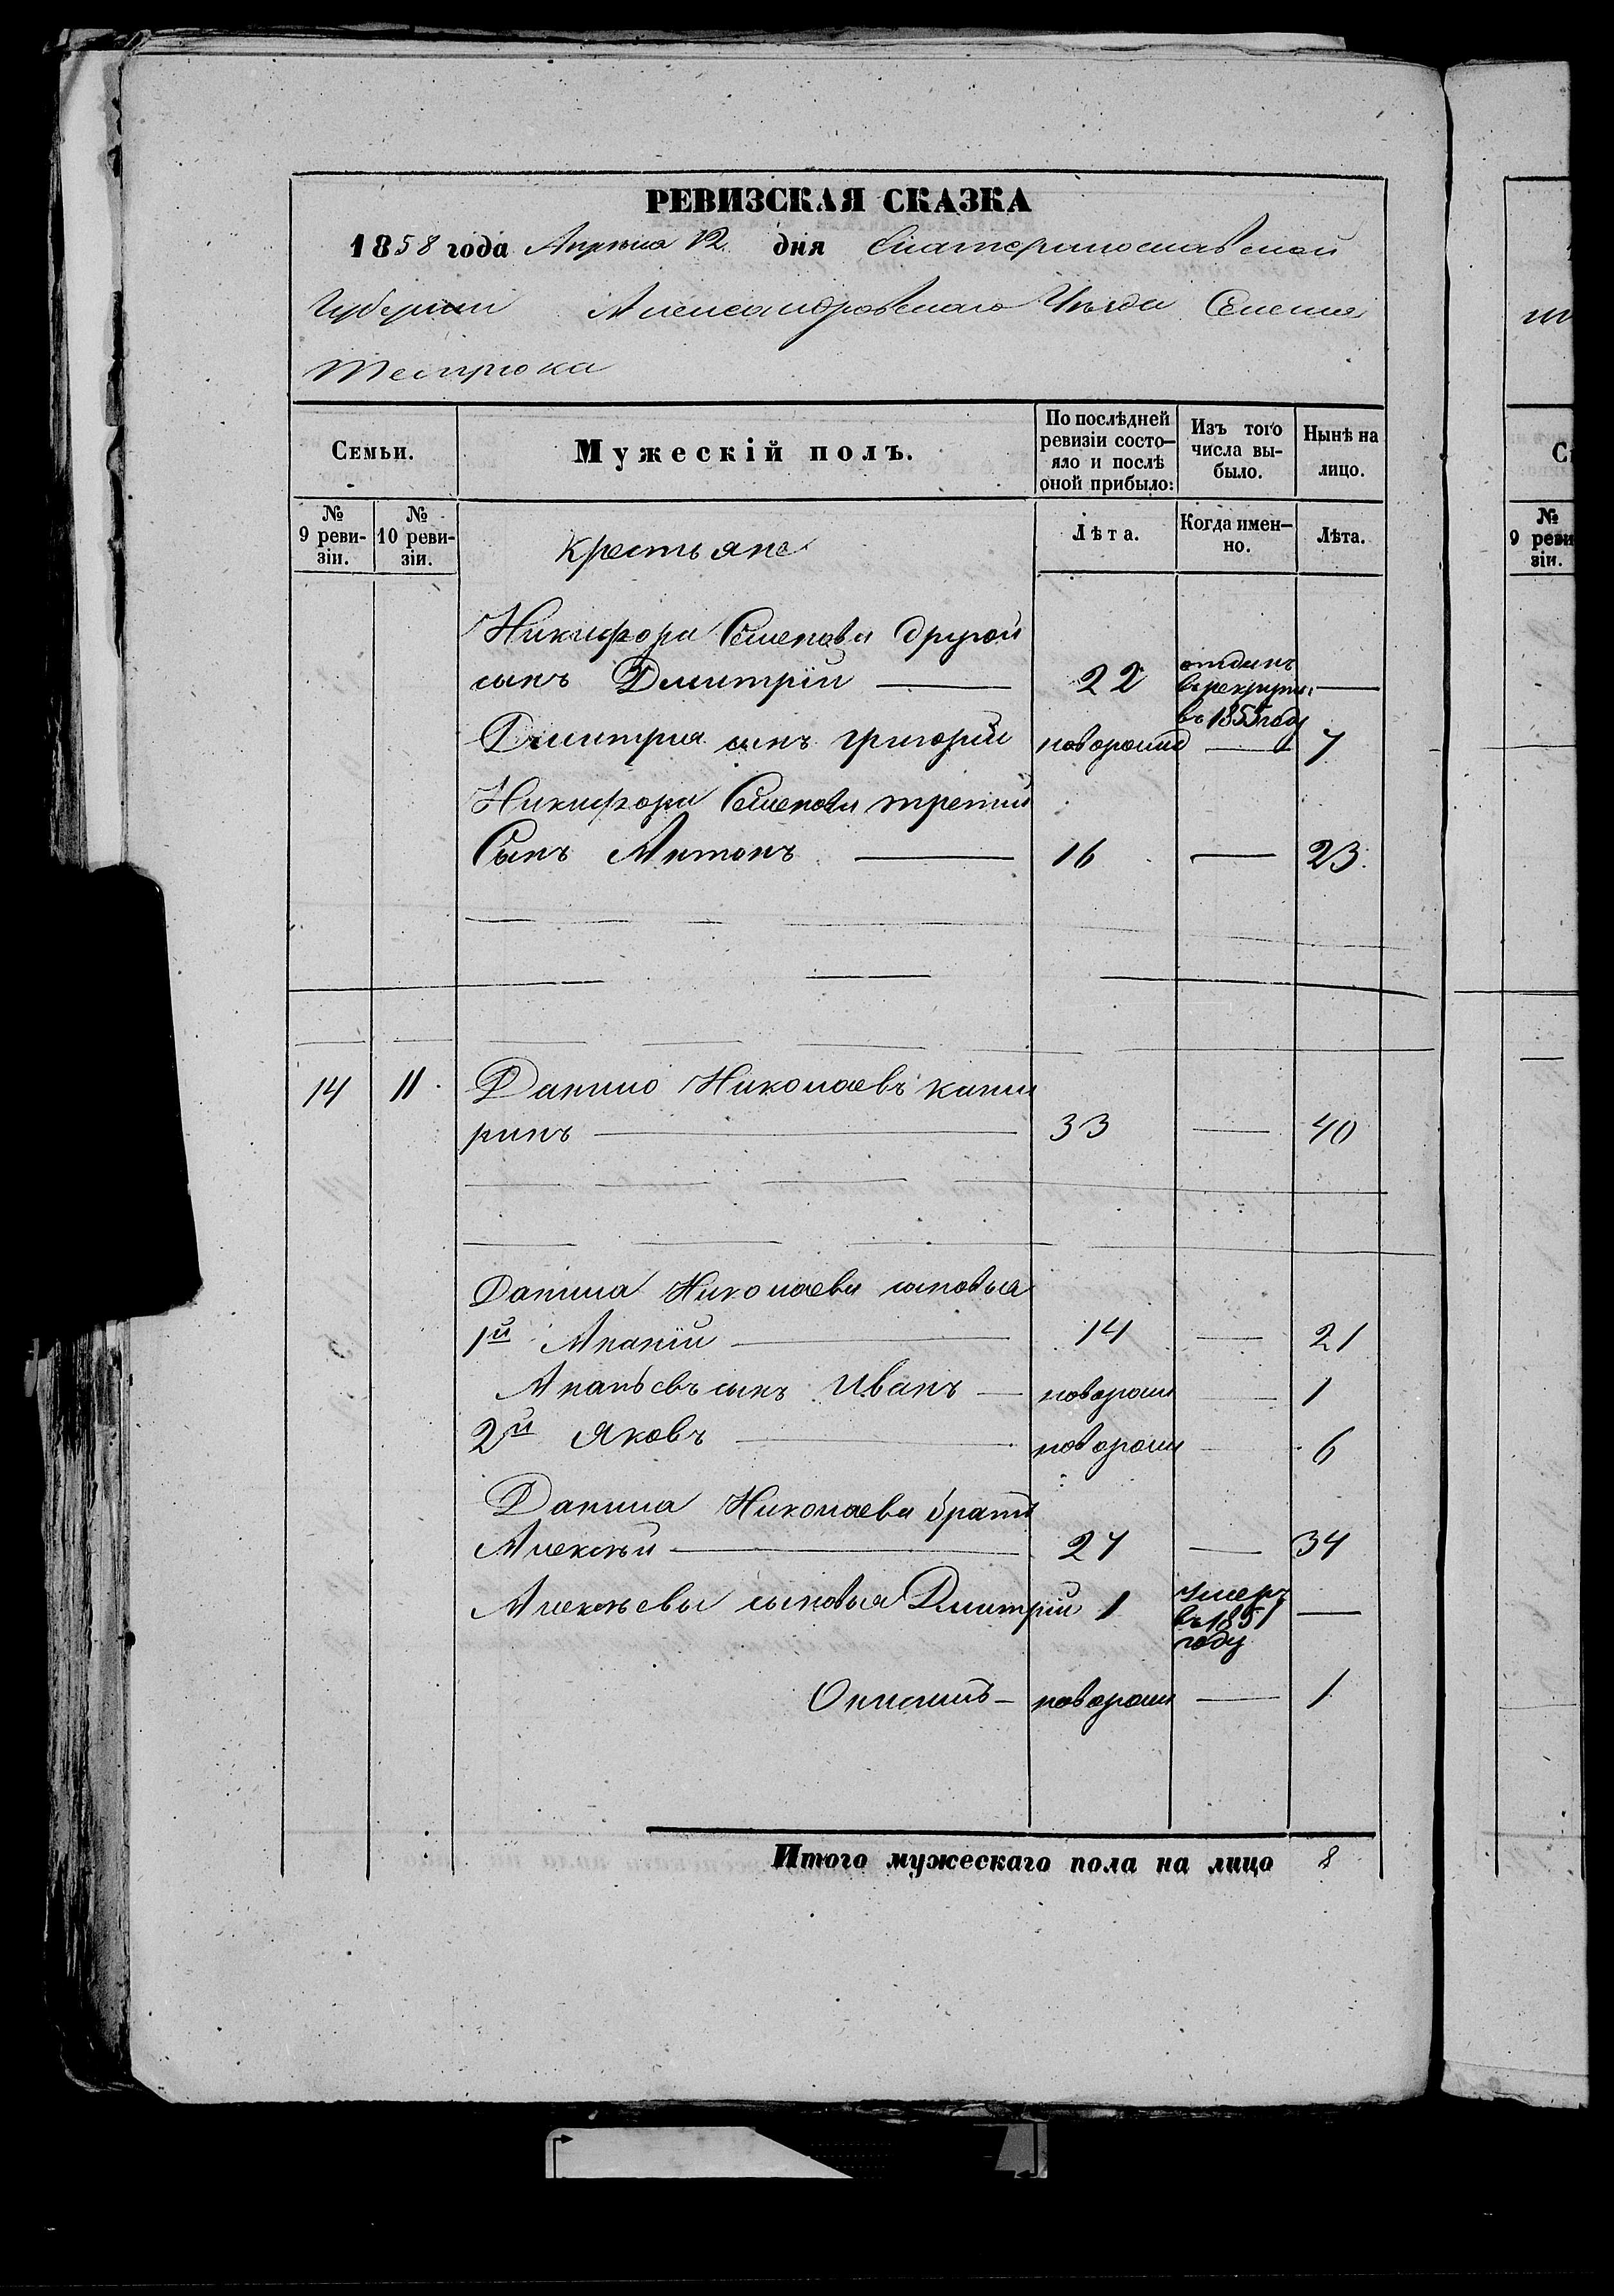 РЕВИЗСКАЯ СКАЗКА
1858 года Апреля 12 дня Екатеринославской
Губернии Александровскаго Уѣзда Селения
Темрюка
Семьи.
Мужескій полъ.
По послѣдней ревизіи состояло и послѣ оной прибыло:
Изъ того числа выбыло.
Нынѣ на лицо.
№ 9 ревизіи.
№ 10 ревизіи.
Крестьяне
Лѣта.
Когда именно.
Лѣта.
Никифора Семенова другой
сынъ Дмитрій 22 отданъ в рекруты в 1855 году
Дмитрия сынъ Григорій новорожд 7
Никифора Семенова третий
Сынъ Антонъ 16 23
14 11. Данило Николаевъ
ринъ 33 40
Данила Николаева сыновья
1й Ананій 14 21
Ананьевъ сынъ Иванъ новорож 1
2й Яковъ новорож 6
Данила Николаева братъ
Алексѣй 27 34
Алексѣевы сыновья Дмитрій 1 умеръ въ 1851 году
новорож 1
Итого мужескаго пола на лицо 8
С
№
9 реви
зіи.